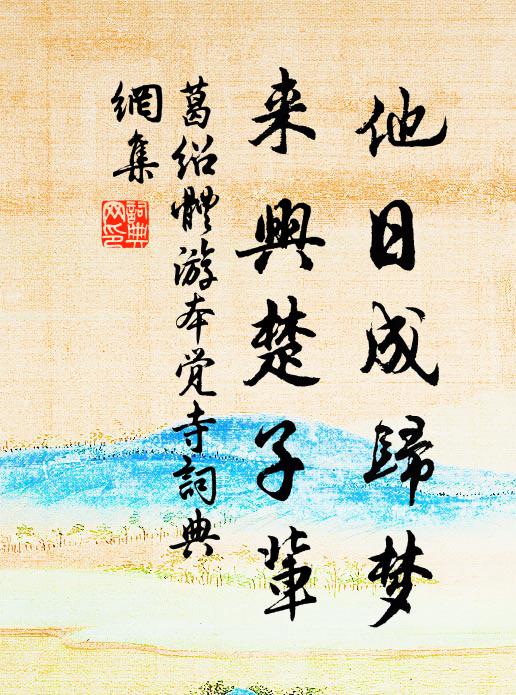 他日成歸梦
来興楚子輩
葛绍體游本覚寺詞典
網集
詞典
网印